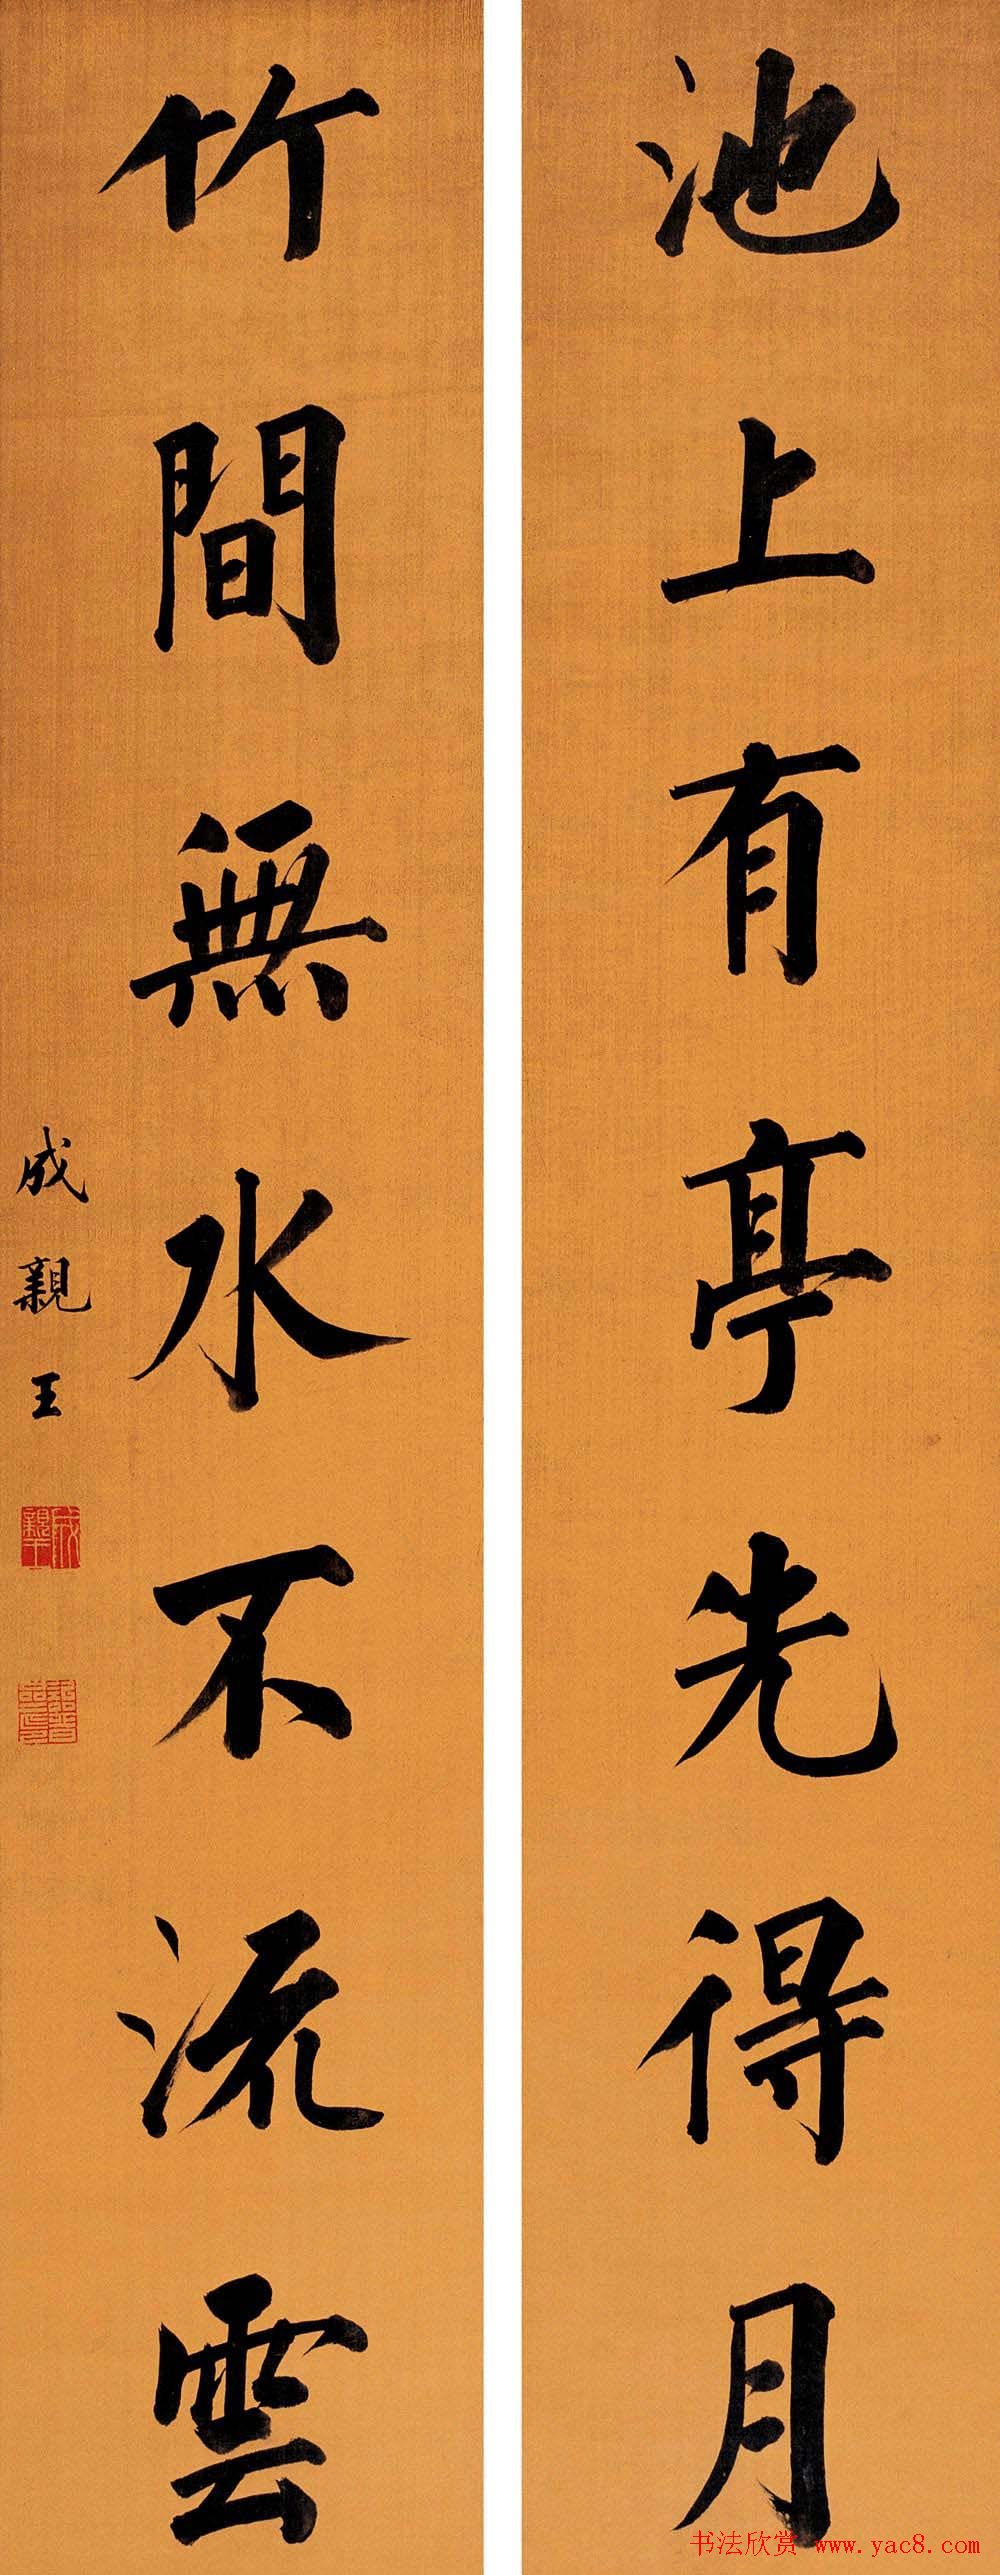 池上有亭先得月
竹間無水不流雲
成親王
成親王
书法欣赏 www.yac8.com